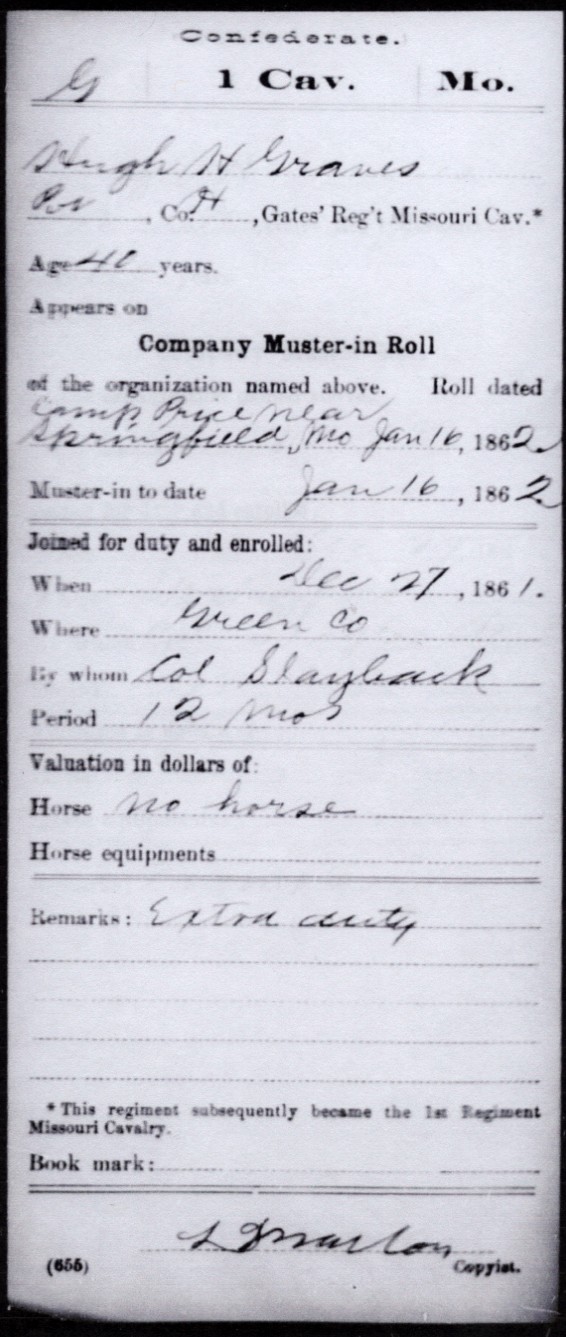 Confederate.
G 1 Cav. Mo.
Hugh H Graves
Pvt, Co. H, Gates' Reg't Missouri Cav.*
Age 40 years.
Appears on
Company Muster-in Roll
of the organization named above. Roll dated
Camp Price near
Springfield, Mo Jan 16, 1862.
Muster-in to date Jan 16, 1862
Joined for duty and enrolled:
When Dec 27, 1861.
Where Green Co
By whom Col Slayback
Period 12 mos
Valuation in dollars of:
Horse no horse
Horse equipments
Remarks: Extra duty
* This regiment subsequently became the 1st Regiment
Missouri Cavalry.
Book mark:
(655) Copyist.